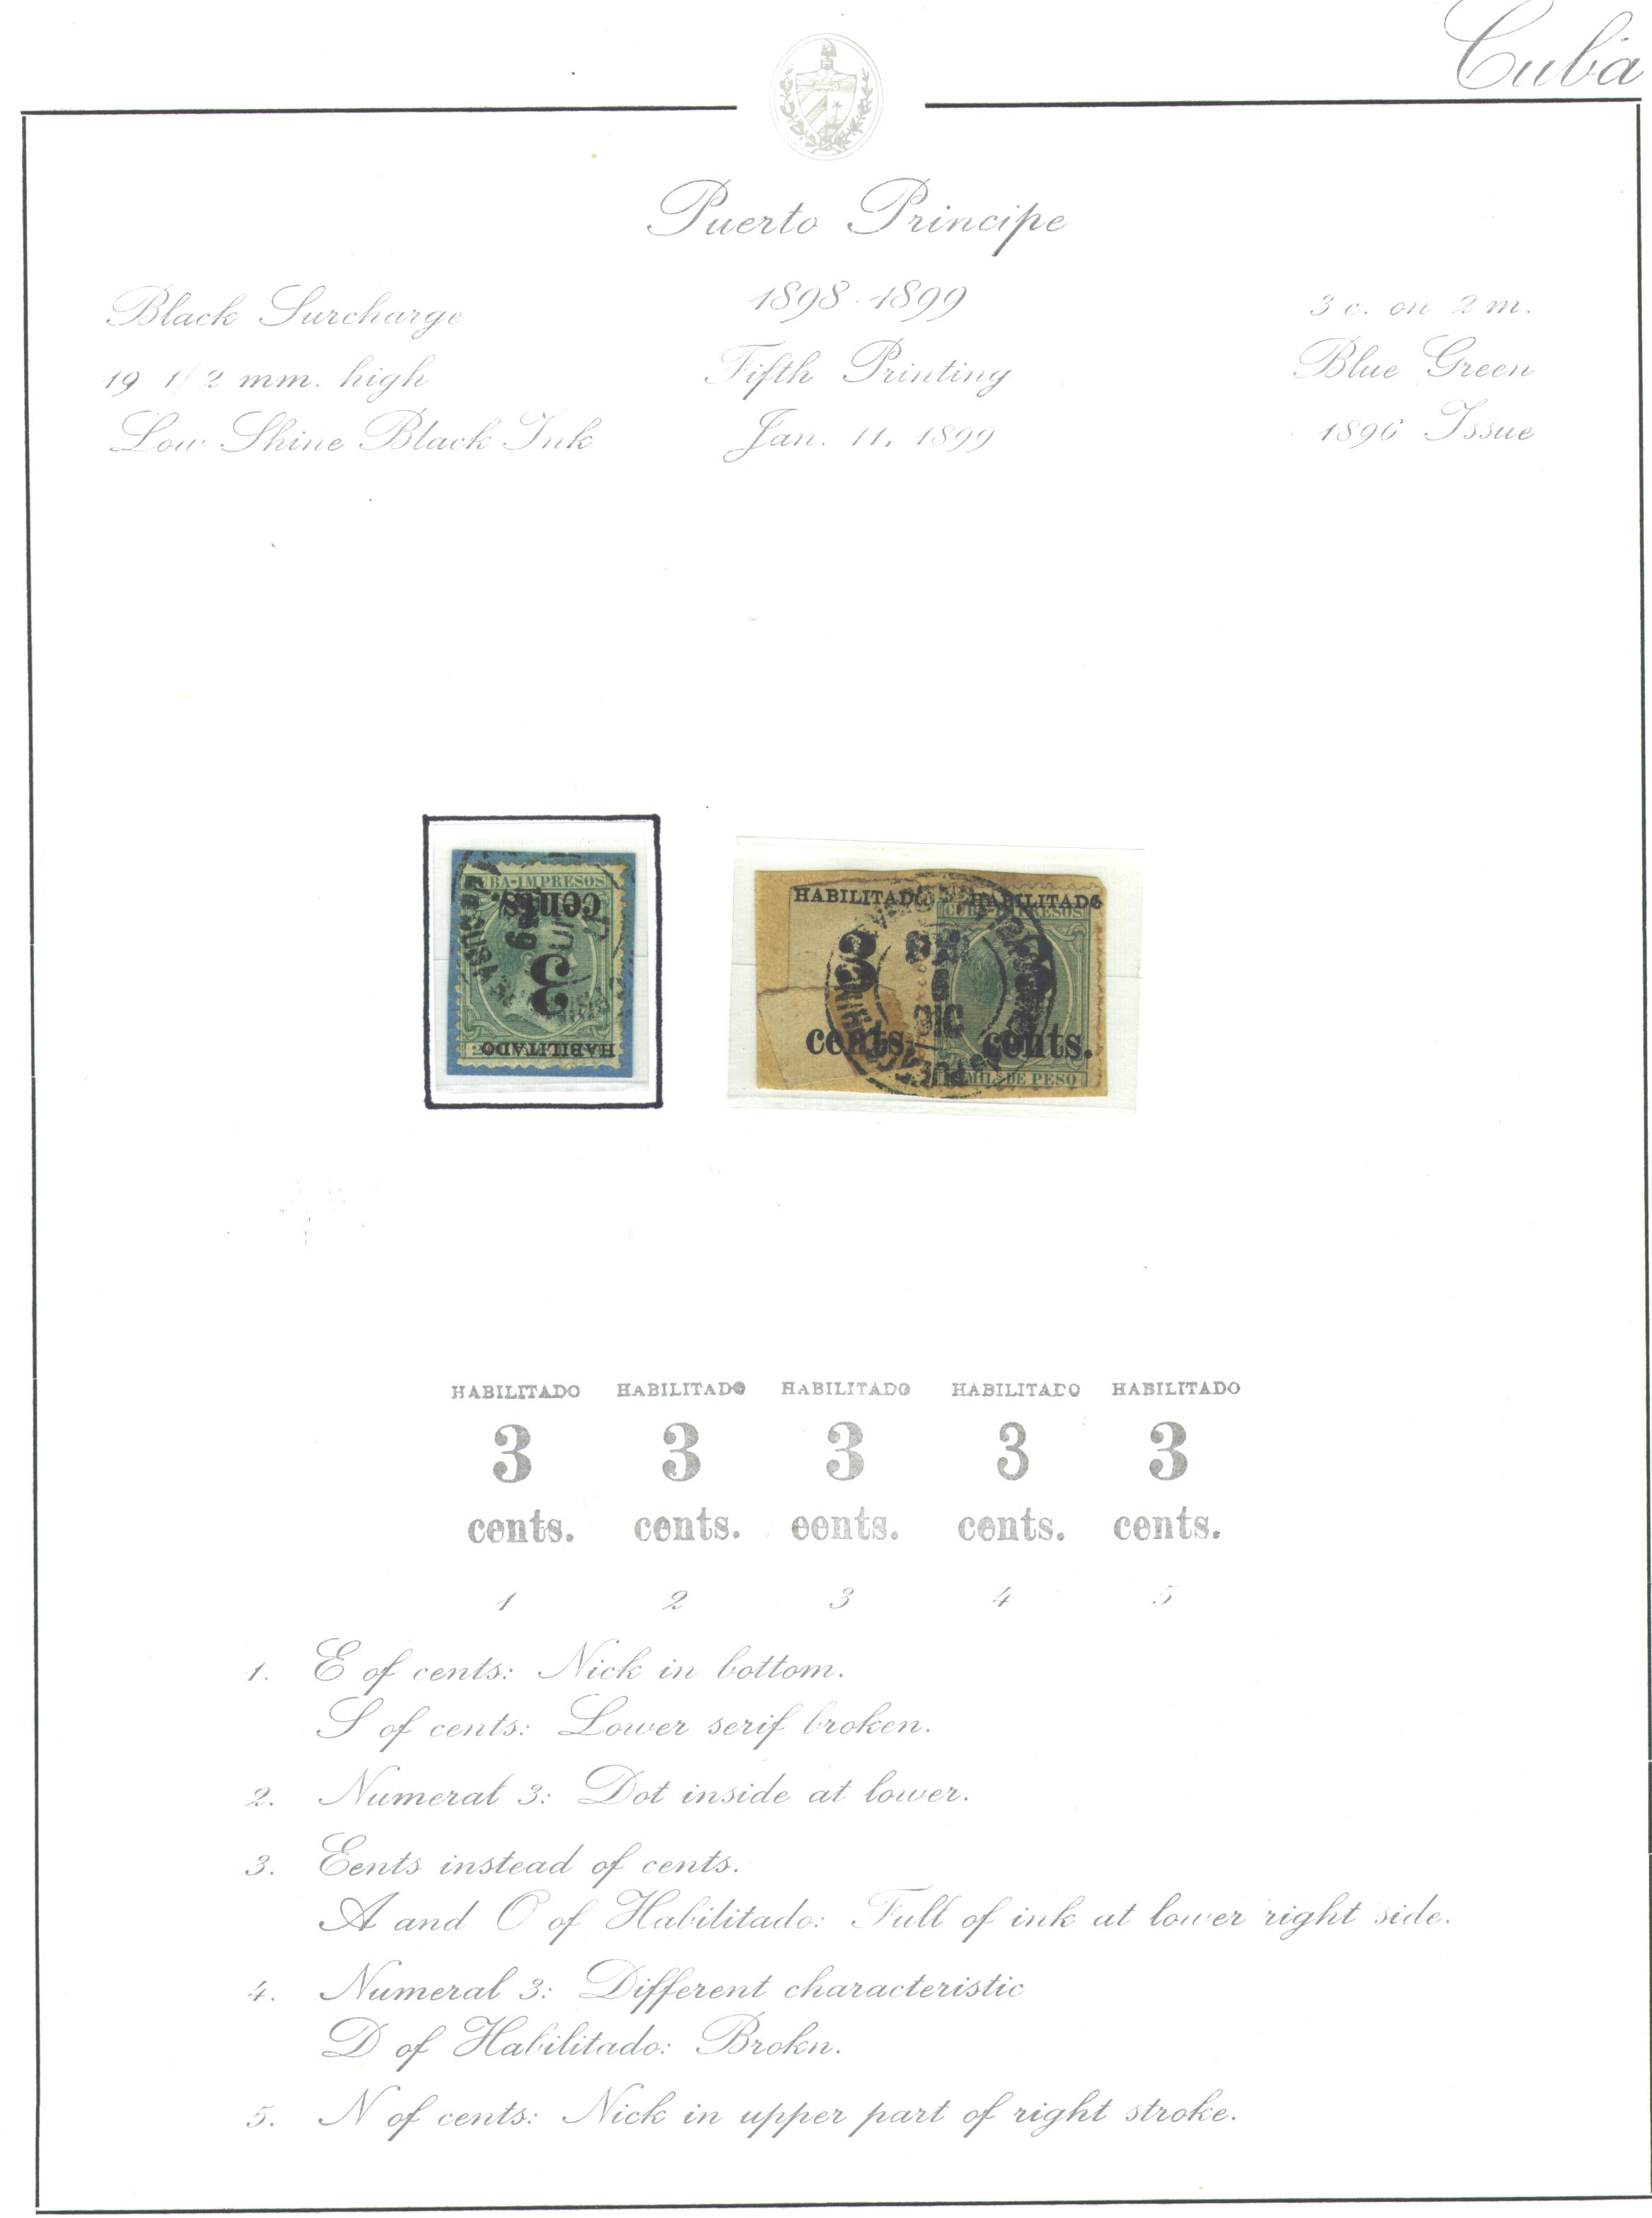 Cuba
Puerto Principe
Black Surcharge
1898-1899
3 c. on 2 m.
19 1/2 mm. high
Fifth Printing
Blue Green
Low Shine Black Ink
Jan. 11, 1899
1896 Issue
CUBA-IMPRESOS
cents.
3
HABILITADO
HABILITADO HABILITADO
CUBA-IMPRESOS
3 3
DIC
cents. cents.
MILS DE PESO
HABILITADO HABILITADO HABILITADO HABILITADO HABILITADO
3 3 3 3 3
cents. cents. eents. cents. cents.
1 2 3 4 5
1. E of cents: Nick in bottom.
S of cents: Lower serif broken.
2. Numeral 3: Dot inside at lower.
3. Eents instead of cents.
A and O of Habilitado: Full of ink at lower right side.
4. Numeral 3: Different characteristic
D of Habilitado: Brokn.
5. N of cents: Nick in upper part of right stroke.